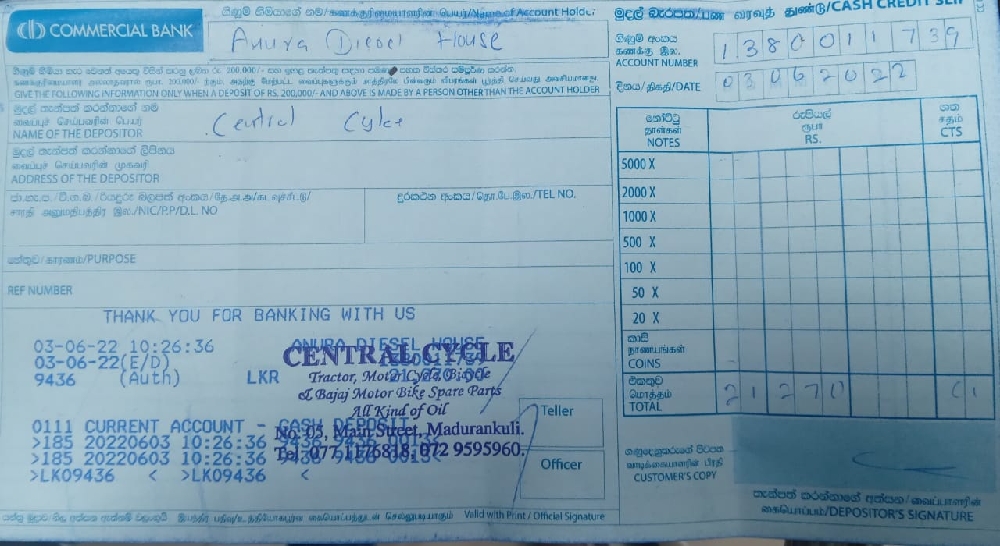 COMMERCIAL BANK
ගිණුම් හිමියාගේ නම/கணக்குரிமையாளரின் பெயர்/Name of Account Holder
Anura Diesel House
මුදල් බැරපත/பண வரவுத் துண்டு/CASH CREDIT SLIP
ගිණුම් අංකය
கணக்கு இல.
ACCOUNT NUMBER
1380011739
දිනය/திகதி/DATE
03062022
GIVE THE FOLLOWING INFORMATION ONLY WHEN A DEPOSIT OF RS. 200,000/- AND ABOVE IS MADE BY A PERSON OTHER THAN THE ACCOUNT HOLDER
මුදල් තැන්පත් කරන්නාගේ නම
வைப்புச் செய்பவரின் பெயர்
NAME OF THE DEPOSITOR
Central Cylce
මුදල් තැන්පත් කරන්නාගේ ලිපිනය
வைப்புச் செய்பவரின் முகவரி
ADDRESS OF THE DEPOSITOR
சாரதி அனுமதிபத்திர இல./NIC/P.P/D.L. NO
දුරකථන අංකය/தொ.பே.இல./TEL NO.
හේතුව/காரணம்/PURPOSE
REF NUMBER
THANK YOU FOR BANKING WITH US
03-06-22 10:26:36 ANURA DIESEL HOUSE
03-06-22(E/D)
9436 (Auth) LKR 21,270.00
CENTRAL CYCLE
Tractor, Motor Cycle, Bicycle
& Bajaj Motor Bike Spare Parts
All Kind of Oil
No. 05, Main Street, Madurankuli.
Tel: 077 1176818, 072 9595960.
0111 CURRENT ACCOUNT - CASH DEPOSIT
>185 20220603 10:26:36 9436 9436 0013<
>185 20220603 10:26:36 9436 9436 0013<
>LK09436 < >LK09436 <
Teller
Officer
Valid with Print / Official Signature
නෝට්ටු
நாள்கள்
NOTES
රුපියල්
ரூபா
RS.
ශත
சதம்
CTS
5000 X
2000 X
1000 X
500 X
100 X
50 X
20 X
කාසි
நாணயங்கள்
COINS
එකතුව
மொத்தம்
TOTAL
21270
ගනුදෙනුකරුගේ පිටපත
வாடிக்கையாளரின் பிரதி
CUSTOMER'S COPY
තැන්පත් කරන්නාගේ අත්සන/வைப்பாளரின்
கையொப்பம்/DEPOSITOR'S SIGNATURE